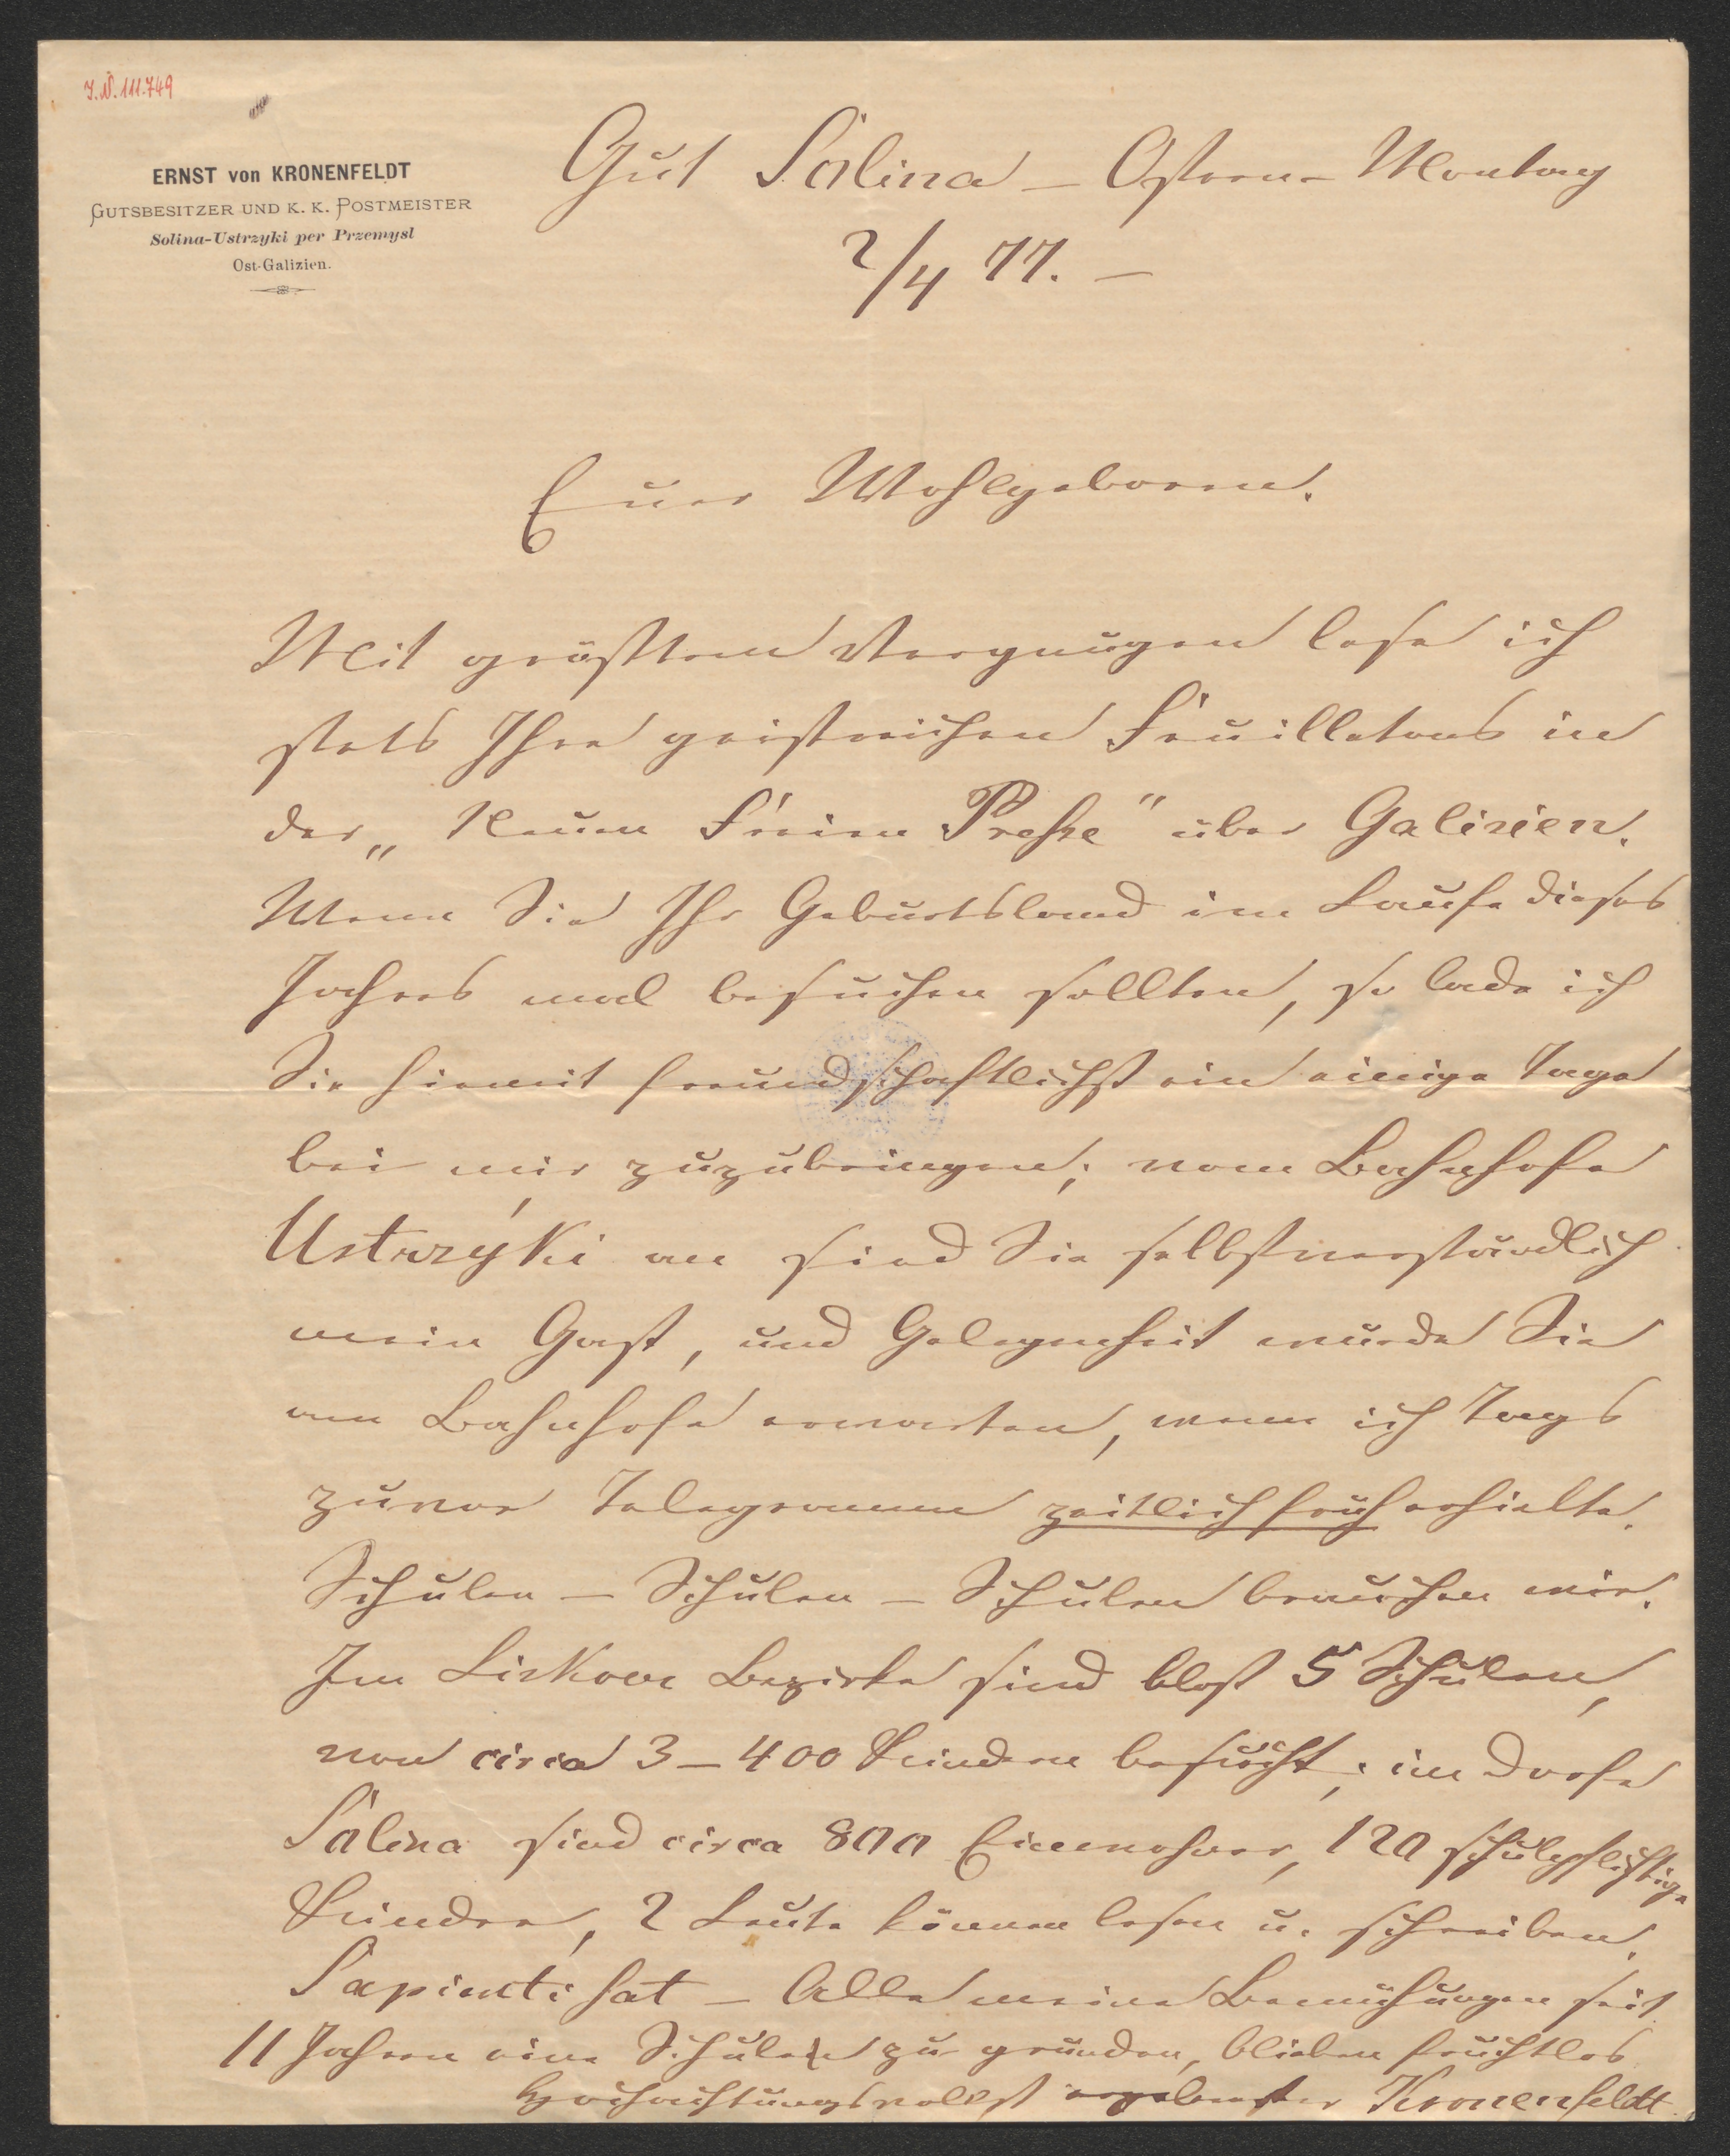 I.N. 111.749
ERNST von KRONENFELDT
GUTSBESITZER UND K. K. POSTMEISTER
Solina-Ustrzyki per Przemysl
Ost-Galizien.
Gut Solina – Ostern-Montag
2/4 77. –
Euer Wohlgeboren.
Mit größtem Vergnügen lese ich
stets Ihre geistreichen Feuilletons in
der „Neuen Freien Preße" über Galizien.
Wenn Sie Ihr Geburtsland im Laufe dieses
Jahres mal besuchen sollten, so lade ich
Sie hiemit freundschaftlichst ein einige Tage
bei mir zuzubringen; vom Bahnhofe
Ustrzyki an sind Sie selbstverständlich
mein Gast, und Gelegenheit würde Sie
am Bahnhofe erwarten, wenn ich Tags
zuvor Telegramm zeitlich früh erhielte.
Schulen – Schulen – Schulen brauchen wir.
Im Liskoer Bezirke sind bloß 5 Schulen,
von circa 3–400 Kindern besucht; im Dorfe
Solina sind circa 800 Einwohner, 120 schulpflichtige
Kinder, 2 Leute können lesen u. schreiben.
Sapienti sat – Alle meine Bemühungen seit
11 Jahren eine Schule zu gründen, blieben fruchtlos
Hochachtungsvollst ergebenster Kronenfeldt